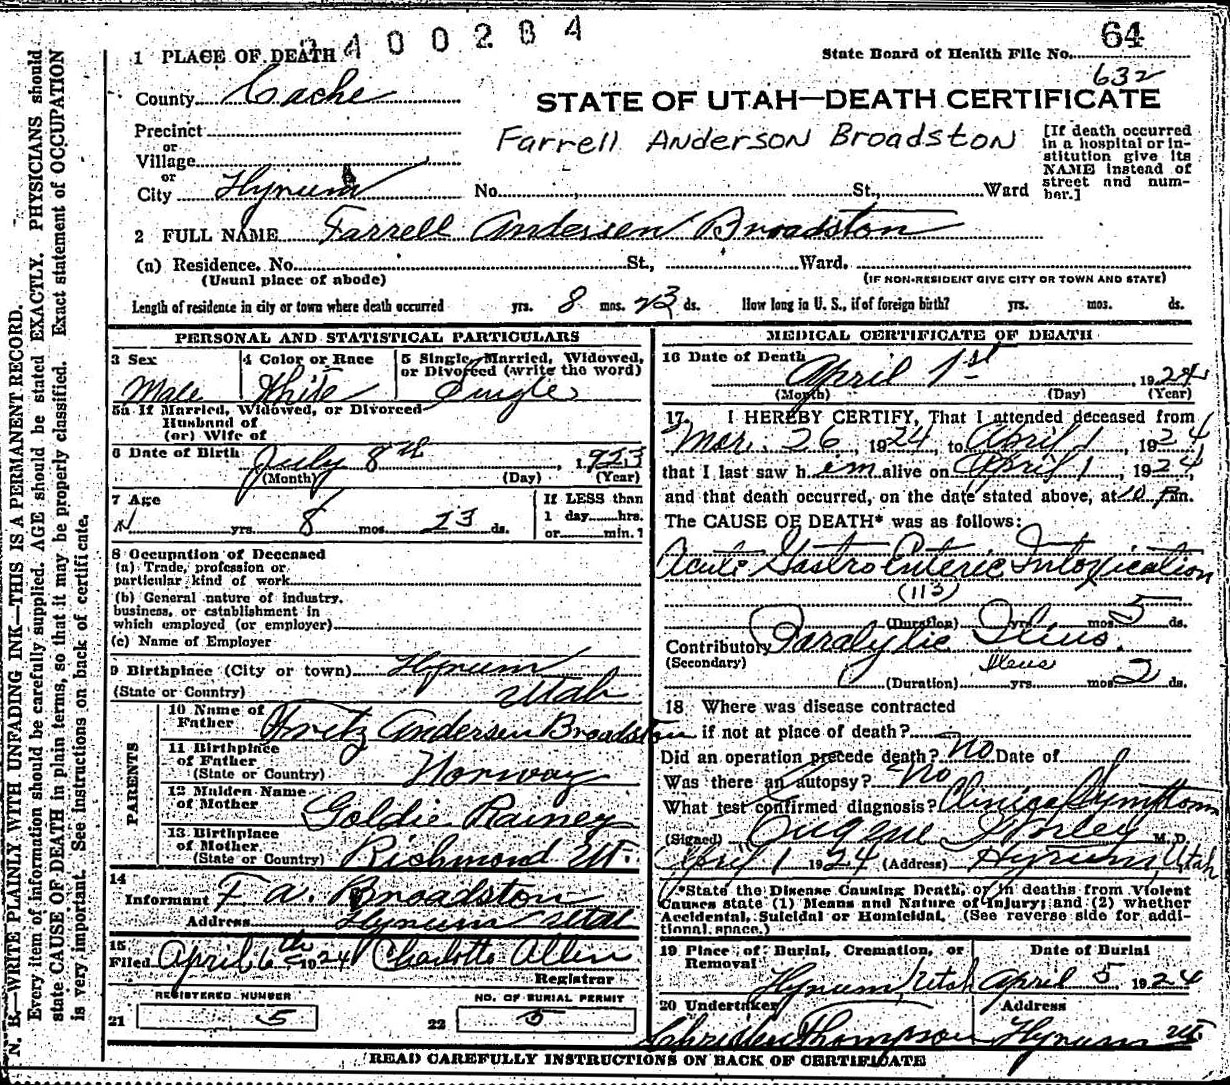 2400284
64
1 PLACE OF DEATH
State Board of Health File No.
632
County Cache
STATE OF UTAH—DEATH CERTIFICATE
Precinct
or
Village
or
City Hyrum No. St., Ward
Farrell Anderson Broadston
[If death occurred
in a hospital or in-
stitution give its
NAME instead of
street and num-
ber.]
2 FULL NAME Farrell Andersen Broadston
(a) Residence. No. St., Ward.
(Usual place of abode) (IF NON-RESIDENT GIVE CITY OR TOWN AND STATE)
Length of residence in city or town where death occurred yrs. 8 mos. 23 ds. How long in U. S., if of foreign birth? yrs. mos. ds.
PERSONAL AND STATISTICAL PARTICULARS
3 Sex
Male
4 Color or Race
White
5 Single, Married, Widowed,
or Divorced (write the word)
Single
5a If Married, Widowed, or Divorced
Husband of
(or) Wife of
6 Date of Birth July 8th, 1923
(Month) (Day) (Year)
7 Age
yrs. 8 mos. 23 ds.
If LESS than
1 day hrs.
or min. ?
8 Occupation of Deceased
(a) Trade, profession or
particular kind of work
(b) General nature of industry,
business, or establishment in
which employed (or employer)
(c) Name of Employer
9 Birthplace (City or town) Hyrum
(State or Country) Utah
PARENTS
10 Name of
Father Fritz Andersen Broadston
11 Birthplace
of Father
(State or Country) Norway
12 Maiden Name
of Mother Goldie Rainey
13 Birthplace
of Mother
(State or Country) Richmond Ut.
14
Informant F. A. Broadston
Address Hyrum Utah
15
Filed April 6th 1924 Charlotte Allen
Registrar
REGISTERED NUMBER
21 5
NO. OF BURIAL PERMIT
22 5
MEDICAL CERTIFICATE OF DEATH
16 Date of Death
April 1st, 1924
(Month) (Day) (Year)
17. I HEREBY CERTIFY, That I attended deceased from
Mar. 26, 1924, to April 1, 1924,
that I last saw him alive on April 1, 1924,
and that death occurred, on the date stated above, at 10 P.m.
The CAUSE OF DEATH* was as follows:
Acute Gastro Enteric Intoxication
(113)
(Duration) yrs. mos. 5 ds.
Contributory Paralytic Ilius.
(Secondary) Ileus
(Duration) yrs. mos. 2 ds.
18 Where was disease contracted
if not at place of death?
Did an operation precede death? No Date of
Was there an autopsy? No
What test confirmed diagnosis? Clinical Symptoms
(Signed) Eugene Worley M. D.
April 1 1924 (Address) Hyrum, Utah
*State the Disease Causing Death, or in deaths from Violent
Causes state (1) Means and Nature of Injury; and (2) whether
Accidental, Suicidal or Homicidal. (See reverse side for addi-
tional space.)
19 Place of Burial, Cremation, or
Removal
Hyrum, Utah
Date of Burial
April 5 1924
20 Undertaker
Thompson
Address
Hyrum Ut.
READ CAREFULLY INSTRUCTIONS ON BACK OF CERTIFICATE
N. B.—WRITE PLAINLY WITH UNFADING INK—THIS IS A PERMANENT RECORD.
Every item of information should be carefully supplied. AGE should be stated EXACTLY. PHYSICIANS should
state CAUSE OF DEATH in plain terms, so that it may be properly classified. Exact statement of OCCUPATION
is very important. See instructions on back of certificate.